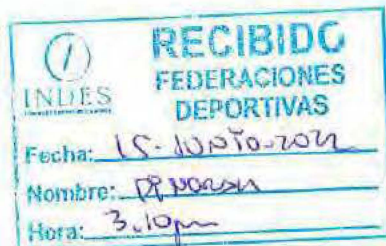 RECIBIDO
INDES
FEDERACIONES
DEPORTIVAS
Fecha: 15-JUNIO-2022
Nombre:
Hora: 3.10pm